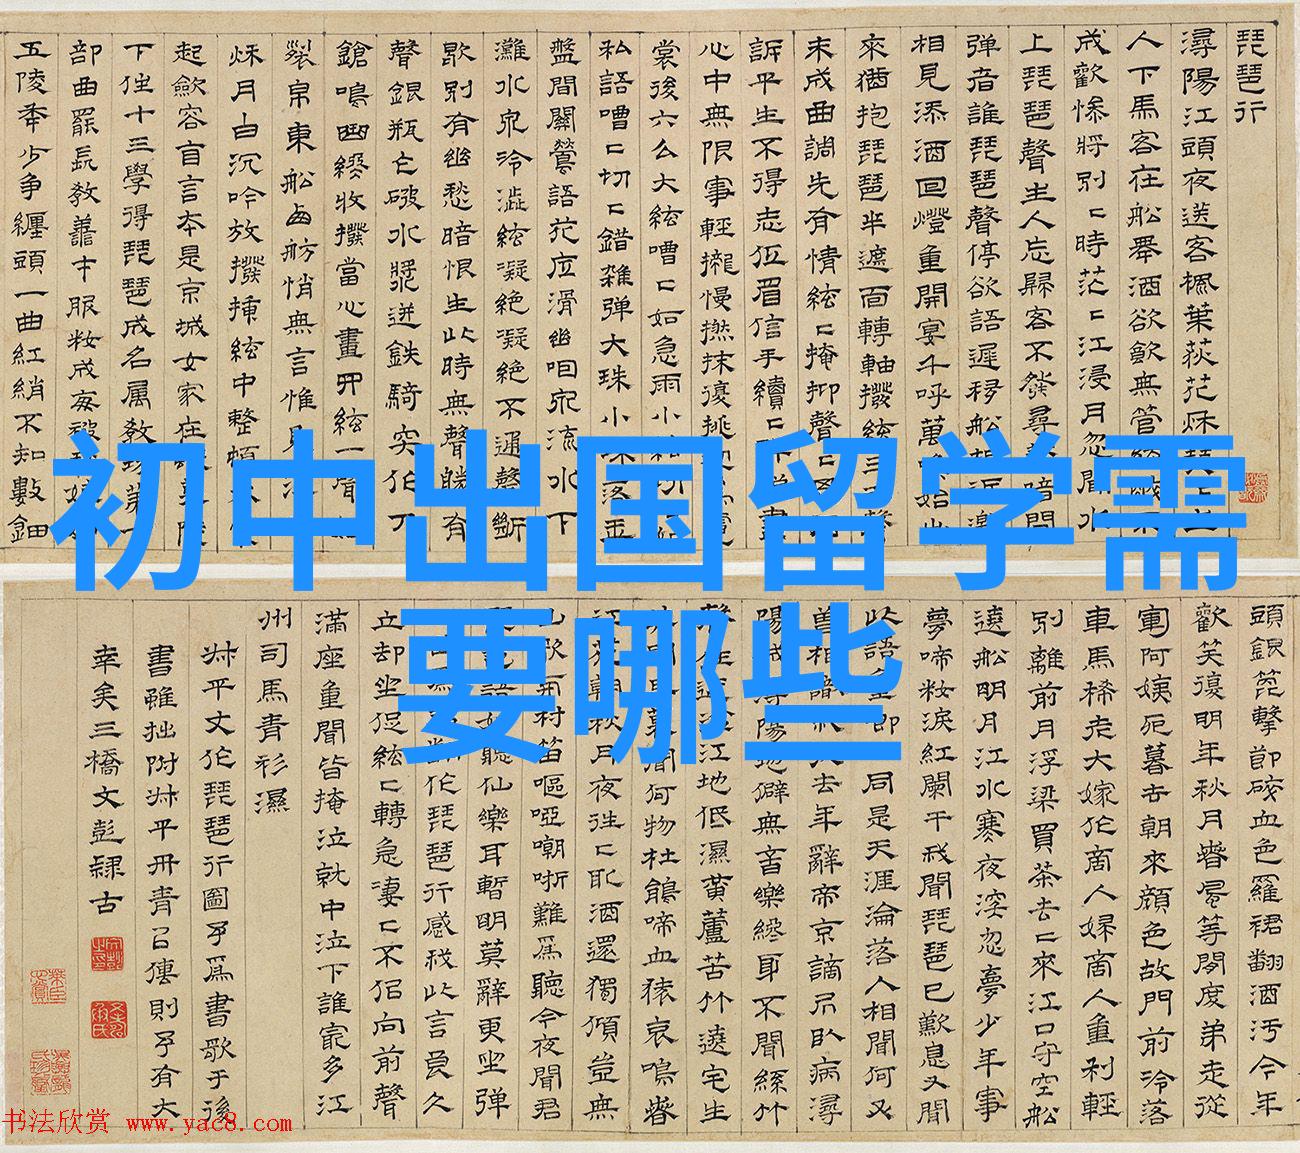 琵琶行
潯陽江頭夜送客楓葉荻花秋瑟
人下馬客在船舉酒欲飲無管
成歡慘將別〻時茫〻江浸月忽聞水
上琵琶聲主人忘歸客不發尋聲暗問
彈者誰琵琶聲停欲語遲移船相
相見添酒回燈重開宴千呼萬喚始出
來猶抱琵琶半遮面轉軸撥絃三
未成曲調先有情絃〻掩抑聲〻
訴平生不得志低眉信手續〻彈
心中無限事輕攏慢撚抹復挑
裳後六么大絃嘈〻如急雨小絃切〻
私語嘈〻切〻錯雜弹大珠小珠落玉
盤間關鶯語花底滑幽咽泉流水下
灘水泉冷澁絃凝絶凝絶不通聲漸
歇別有幽愁暗恨生此時無聲勝有
聲銀瓶乍破水漿迸鉄騎突出刀
鎗鳴曲終收撥當心畫四絃一聲
裂帛東船西舫悄無言惟見
秋月白沉吟放撥插絃中整頓衣
起斂容自言本是京城女家在
下住十三學得琵琶成名属教坊第一
部曲罷長教善才服粧成每被
五陵年少爭纏頭一曲紅綃不知數鈿
初中出国留学需
要哪些
頭銀篦擊節碎血色羅裙翻酒汚今年
歡笑復明年秋月春風等閑度弟走從
軍阿姨死暮去朝來顔色故門前冷落
車馬稀老大嫁作商人婦商人重利輕
別離前月浮梁買茶去〻來江口守空船
遶船明月江水寒夜深忽夢少年事
夢啼粧淚紅闌干我聞琵琶已歎息又聞
此語重唧 同是天涯淪落人相聞何必
曾相識 去年辭帝京謫居臥病潯
陽城潯陽地僻無音樂終歲不聞絲竹
江地低濕黃蘆苦竹遶宅生
聞何物杜鵑啼血猿哀鳴春
江花朝秋月夜往〻取酒還獨傾豈無
山歌 村笛嘔啞嘲哳難爲聽今夜聞君
琵琶語如聽仙樂耳暫明莫辭更坐彈
作琵琶行感我此言良久
立却坐促絃〻轉急凄〻不似向前聲
滿座重聞皆掩泣就中泣下誰㝡多江
州司馬青衫濕
叔平丈作琵琶行圖予爲書歌于後
書雖拙附叔平丹青以傳則予有大
幸矣三橋文彭隸古
书法欣赏 www.yac8.com